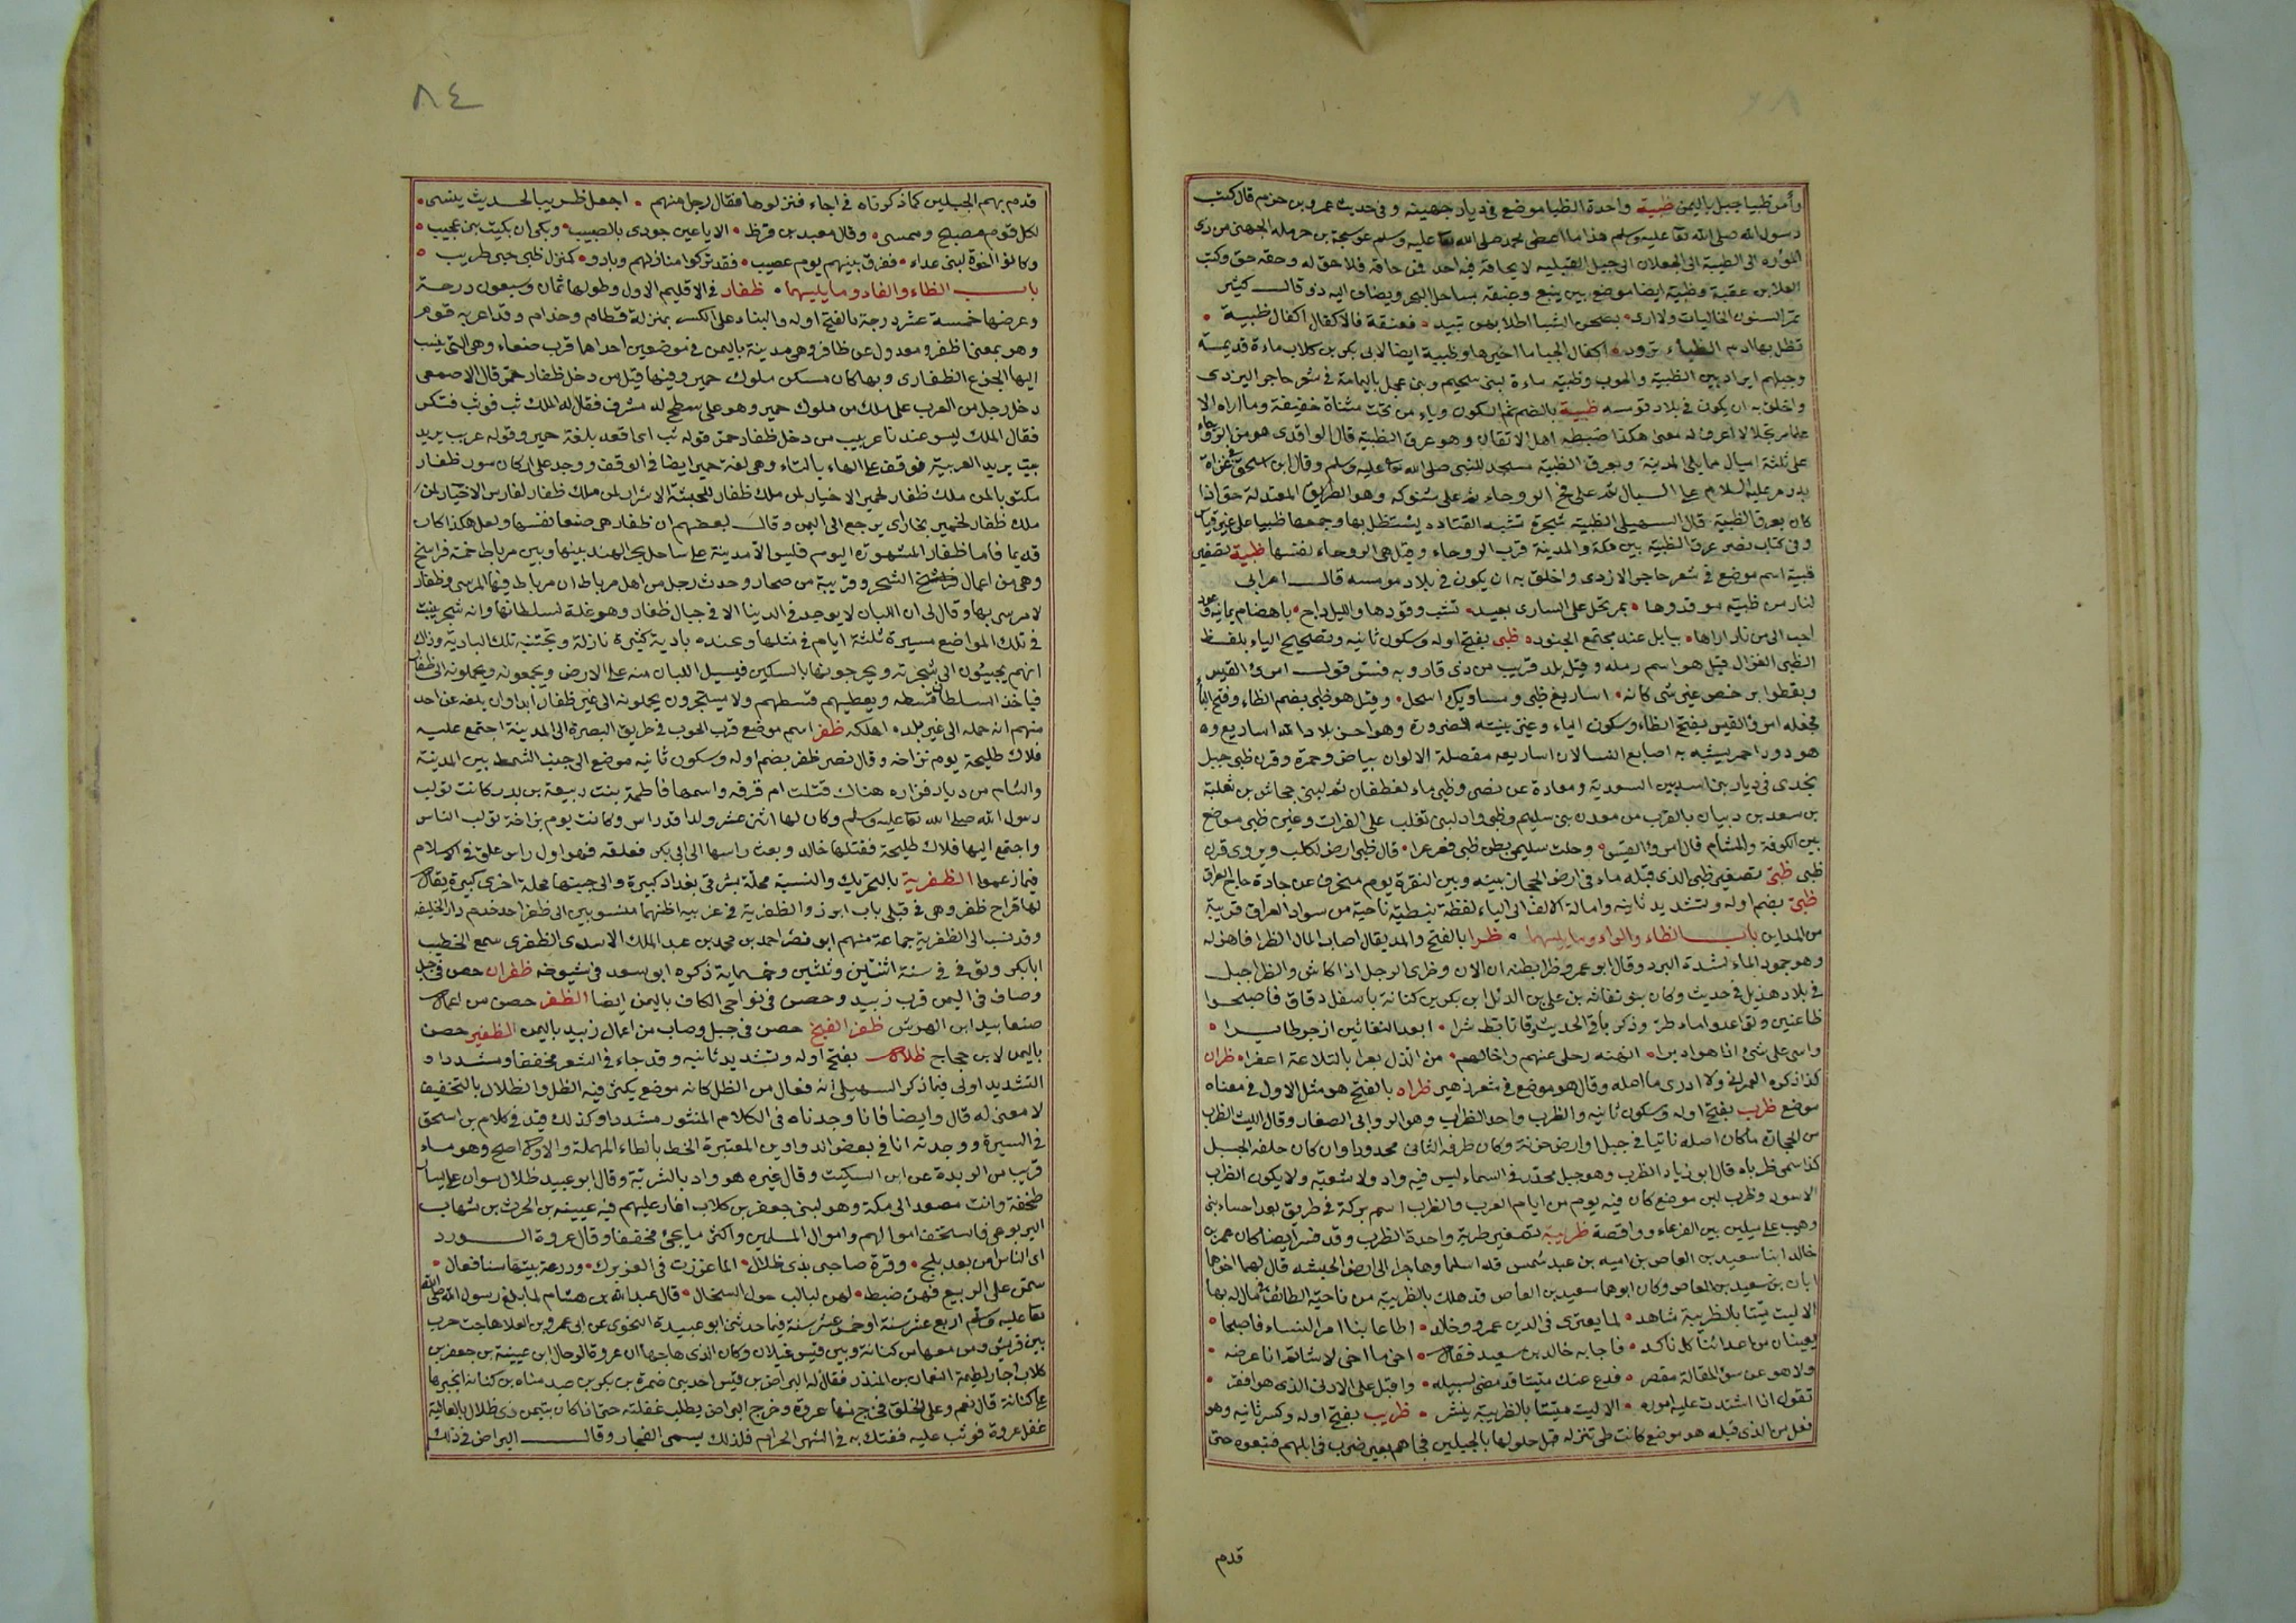 وأمر تظبيا جبل باليمن ظبية واحدة الظبا موضع في ديار جهينة وفي حديث عمرو بن حزم قال كتب
رسول الله صلى الله تعا عليه وسلم هذا ما اعطى محمد صلى الله تعا عليه وسلم عوسجة بن حرملة الجهني من ذى
المروه الى الظبية الى الجعلات الى جبل القبلية لا يحاقه فيه احد فمن حاقه فلا حق له وحقه حق وكتب
العلا بن عقبة وظبية ايضا موضع بين ينبع وغيقه بساحل البحر ويضاف اليه ذو قال كثير
تمر السنون الخاليات ولا ارى بصحن الشبا اطلالهن تبيد فغيقة فالاكفال اكفال ظبية
تظل بها ادم الظباء ترود اكفال الجبا ما اخيرها وظبية ايضا لابى بكر بن كلاب ماءة قديمة
وجبلهم ايراد بين الظبية والحوب وظبيه ماءة لبنى سحيم وبنى عجل باليمامة في شعر حاجر اليزدى
واخلق به ان يكون في بلاد قومه ظبية بالضم ثم السكون وياء من تحت مثناة خفيفة وما اراه الا
علما مرتجلا لا اعرف له معنى هكذا ضبطه اهل الاتقان وهو عرق الظبية قال الواقدى هو من الروحاء
على ثلثة اميال مما يلى المدينة وبعرق الظبية مسجد للنبى صلى الله تعا عليه وسلم وقال ابن اسحق في غزاة
بدر مر عليه السلام على السيالة ثم على فج الروحاء ثم على شنوكه وهو الطريق المعتدلة حتى اذا
كان بعرق الظبية قال السهيلى الظبية شجرة تشبه القتاده يستظل بها وجمعها ظبيا على غير قياس
وفى كتاب نصر عرق الظبية بين مكة والمدينة قرب الروحاء وقيل هى الروحاء نفسها ظبية تصغير
ظبية اسم موضع في شعر حاجر الازدى واخلق به ان يكون في بلاد قومه قال اعرابى
لنار من ظبية موقدوها بمرتحل على السارى بعيد تشب وقودها والليل داج باهضام يمانية وعود
احب الى من نار اراها ببابل عند مجتمع الجنود ظبى بفتح اوله وسكون ثانيه وتصحيح الياء بلفظ
الظبى الغزال قيل هو اسم رمله وقيل بلد قريب من ذى قار وبه فسر قول امرئ القيس
وتعطوا برخص غير شثن كانه اساريع ظبى ومساويك اسحل وقيل هو ظبى بضم الظاء وفتح الباء
فجعله امرؤ القيس بفتح الظاء وسكون الباء وغير بنيته للضرورة وهو احسن بلاد الله اساريع وه
هو دود احمر يشبه به اصابع النسا لان اساريعه مفصلة الالوان بياض وحمرة وقرن ظبى جبل
بنجدى في ديار بنى اسد بين السعدية ومعادة عن نصر وظبى ماء لغطفان ثم لبنى جحاش بن ثعلبة
بن سعد بن ذبيان بالقرب من معدن بنى سليم وظبى واد لبنى تغلب على الفرات وعين ظبى موضع
بين الكوفة والشام قال امرؤ القيس وحلت سليمى بطن ظبى فعرعرا قال ظبى ارض لكلب ويروى قرن
ظبى ظبى تصغير ظبى الذى قبله ماء في ارض الحجاز بينه وبين النقرة يوم منحرف عن جادة حاج العراق
ظبى بضم اوله وتشديد ثانيه وامالة الالف الى الياء لفظة نبطية ناحية من سواد العراق قريبة
من المداين باب الظاء والراء وما يليهما ظرا بالفتح والمد يقال اصاب المال الظرا فاهزله
وهو جمود الماء لشدة البرد وقال ابو عمرو ظرا بطنه ان الان وظرى الرجل اذا كاس والظرا جبل
في بلاد هذيل في حديث وكان بنو نفاثه بن على بن الدئل ابن بكر بن كنانة باسفل دفاق فاصبحوا
ظاعنين وتواعدوا ماء ظر وذكر باقى الحديث وقال تابط شرا ابعد النفاثيين ازجر طايرا
واسى على شئ اذا هو ادبرا انهنه رحلى عنهم واخالهم من الذل بعرا بالتلاعة اعفرا ظران
كذا ذكره العمرانى ولا ادرى ما اصله وقال هو موضع في شعر زهير ظراه بالفتح هو مثل الاول في معناه
موضع ظرب بفتح اوله وسكون ثانيه والظرب واحد الظراب وهو الروابى الصغار وقال الليث الظرب
من الحجارة ما كان اصله ناتيا في جبل او ارض حزنة وكان طرفه الثانى محدودا وان كان خلفه الجبل
كذا سمى ظربا ه قال ابو زياد الظرب وهو جبل محدد في السماء ليس فيه واد ولا شعبة ولا يكون الظرب
الاسود وظرب لبن موضع كان فيه يوم من ايام العرب والظرب اسم بركة في طريق بعد احساء بنى
وهب على ميلين بين القرعاء وواقصة ظريبة تصغير ظربة واحدة الظرب وقد فسر ايضا كان عمر بن
خالد ابنا سعيد بن العاص بن اميه بن عبد شمس قد اسلما وهاجرا الى ارض الحبشه قال لهما اخوها
ابان بن سعيد بن العاص وكان ابوها سعيد بن العاص قد هلك بالظريبة من ناحية الطائف في مال له بها
الا ليت ميتا بالظريبة شاهد لما يفترى في الدين عمرو وخالد اطاعا بنا امر النساء فاصبحا
يعينان من اعدائنا كل ناكد فاجابه خالد بن سعيد فقال اخى ما اخى لا شاتم انا عرضه
ولا هو عن سوء المقالة مقصر فدع عنك ميتا قد مضى لسبيله واقبل على الادنى الذى هو افقر
تقول اذا اشتدت عليه اموره الا ليت ميتا بالظريبة ينشر ظريب بفتح اوله وكسر ثانيه وهو
فعل من الذى قبله هو موضع كانت طى تنزله قبل حلولها بالجبلين فجاهم بعير ضرب في ابلهم فتبعوه حتى
قدم
٨٤
قدم بهم الجبلين كما ذكرناه في اجاء فنزلوها فقال رجل منهم اجعل ظريبا لحديث ينسى
لكل قوم مصبح وممسى وقال معبد بن قرظ الا يا عين جودى بالصبيب وبكى ان بكيت بنى عجيب
وكانوا اخوة لبنى عداء ففرق بينهم يوم عصيب فقد تركوا منازلهم وبادو كنزل ظبى حبى ظريب
باب الظاء والفاء وما يليهما ظفار في الاقليم الاول وطولها ثمان وسبعون درجة
وعرضها خمسة عشر درجة بالفتح اوله والبناء على الكسر بمنزلة قطام وحذام وقد اعربه قوم
وهو بمعنا اظفر ومعدول عن ظافر وهى مدينة باليمن في موضعين احداها قرب صنعاء وهى التى ينسب
اليها الجزع الظفارى وبها كان مسكن ملوك حمير وفيها قيل من دخل ظفار حمر قال الاصمعى
دخل رجل من العرب على ملك من ملوك حمير وهو على سطح له مشرف فقال له الملك ثب فوثب فتكسر
فقال الملك ليس عندنا عربيت من دخل ظفار حمر قوله ثب اى اقعد بلغة حمير وقوله عربت يريد
جيت يريد العربية فوقف على الهاء بالتاء وهى لغة حمير ايضا في الوقف ووجد على اركان سور ظفار
مكتوبا لمن ملك ظفار لحمير الاخيار لمن ملك ظفار للحبشة الاشرار لمن ملك ظفار لفارس الاخيار لمن
ملك ظفار لحمير بخارى يرجع الى اليمن وقال بعضهم ان ظفار هى صنعا نفسها ولعل هكذا كان
قديما فاما ظفار المشهورة اليوم فليس الا مدينة على ساحل بحر الهند بينها وبين مرباط خمسة فراسخ
وهى من اعمال الشحر وقريبة من صحار وحدث رجل من اهل مرباط ان مرباط فيها المرسى وظفار
لا مرسى بها وقال لى ان اللبان لا يوجد في الدنيا الا في جبال ظفار وهو غلة لسلطانها وانه شجر ينبت
في تلك المواضع مسيرة ثلثة ايام في مثلها وعنده بادية كثيرة نازلة وتجتنيه تلك البادية وذاك
انهم يجيئون الى شجرته ويجرحونها بالسكين فيسيل اللبان منه على الارض ويجمعونه ويحملونه الى ظفار
فياخذ السلطان قسطه ويعطيهم قسطهم ولا يستجرون يحملونه الى غير ظفار ابدا وان بلغه عن احد
منهم انه حمله الى غير بلده اهلكه ظفر اسم موضع قرب الحوب في طريق البصرة الى المدينة اجتمع عليه
فلاك طليحة يوم بزاخه وقال نصر ظفر بضم اوله وسكون ثانيه موضع الى جنب الشميط بين المدينة
والشام من ديار فزاره هناك قتلت ام قرفه واسمها فاطمة بنت ربيعة بن بدر كانت تولب
رسول الله صلى الله تعا عليه وسلم وكان لها اثنى عشر ولدا قد راس وكانت يوم بزاخة تولب الناس
واجتمع اليها فلاك طليحة فقتلها خالد وبعث راسها الى ابى بكر فعلقه فهو اول راس علق في الاسلام
فيما زعموا الظفرية بالتحريك والنسبة محلة بشرقى بغداد كبيرة والى جنبها محلة اخرى كبيرة يقال
لها قراح ظفر وهى في قبلى باب ابرز والظفرية في غربيه اظنهما منسوبين الى ظفر احد خدم دار الخليفه
وقد نسب الى الظفرية جماعة منهم ابو نصر احمد بن محمد بن عبد الملك الاسدى الظفرى سمع الخطيب
ابا بكر وتوفى في سنة اثنتين وثلثين وخمسماية ذكره ابو سعد في شيوخه ظفران حصن في جبل
وصاف في اليمن قرب زبيد وحصن في نواحى الكاف باليمن ايضا الظفر حصن من اعمال
صنعا بيد ابن الهرش ظفر الفنج حصن في جبل وصاب من اعمال زبيد باليمن الظفير حصن
باليمن لابن حجاج ظلال بفتح اوله وتشديد ثانيه وقد جاء في الشعر مخففا ومشددا و
التشديد اولى فيما ذكر السهيلى انه فعال من الظل كانه موضع يكثر فيه الظل والظلال بالتخفيف
لا معنى له قال وايضا فانا وجدناه في الكلام المنثور مشددا وكذلك قيد في كلام بن اسحق
في السيرة ووجدته انا في بعض الدواوين المعتبرة الخط بالطاء المهملة والاول اصح وهو ماء
قريب من الربدة عن ابن السكيت وقال غيره هو واد بالشربة وقال ابو عبيد ظلال سوان على يسار
طخفة وانت مصعد الى مكة وهو لبنى جعفر بن كلاب اغار عليهم فيه عيينه بن الحرث بن شهاب
اليربوعى فاستخف اموالهم واموال السلمين واكثر ما يجئ مخففا وقال عروة الورد
اى الناس امن بعد بلج وقرة صاحبى بذى ظلال الما عززت في العز برك ودرعة بنتها سنا فعال
سمن على الربيع فهن ضبط لهن لبالب حول السخال قال عبد الله بن هشام لما بلغ رسول الله صلى الله
تعا عليه وسلم اربع عشر سنة او خمس عشر سنة فيما حدثنى ابو عبيدة النحوى عن ابى عمرو بن العلا هاجت حرب
بين قريش ومن معها من كنانة وبين قيس غيلان وكان الذى هاجها ان عروة الرحال ابن عيينة بن جعفر بن
كلاب اجار لطيمة النعمان بن المنذر فقال له البراض بن قيس احد بنى ضمرة بن بكر بن عبد مناه بن كنانة اتجيرها
على كنانة قال نعم وعلى الخلق فخرج فيها عروة وخرج البراض يطلب غفلته حتى اذا كان بتيمن ذى ظلال بالعالية
غفل عروة فوثب عليه ففتك به في الشهر الحرام فلذلك يسمى الفجار وقال البراض في ذلك